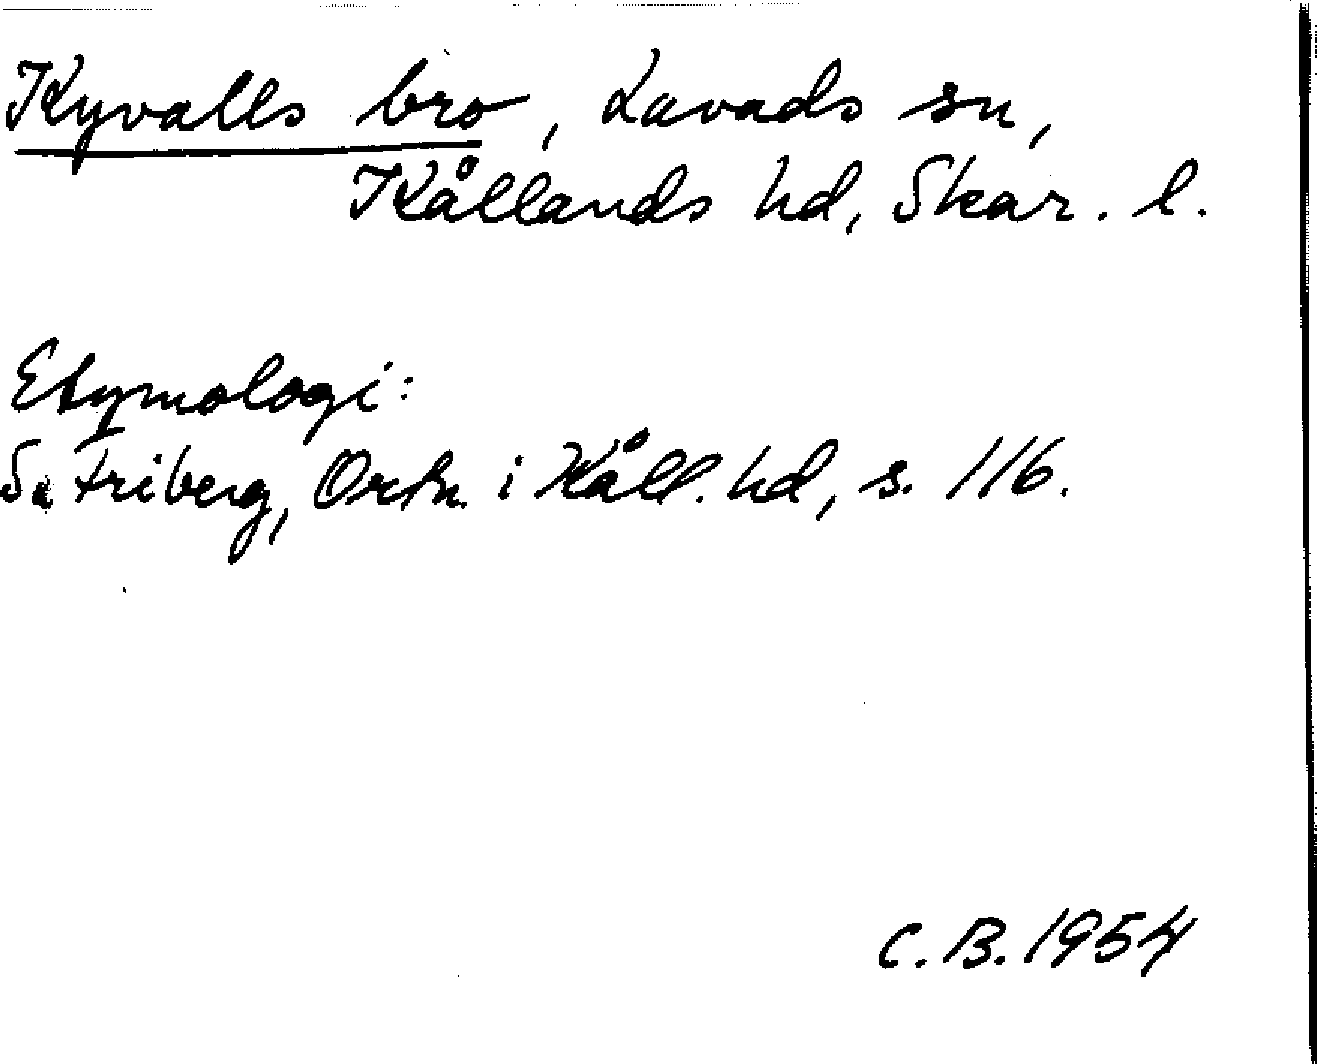 Kyvalls bro, Lavads sn,
Kållands hd, Skar. l.
Etymologi:
Se Friberg, Ortn. i Kåll. hd, s. 116.
C. B. 1954